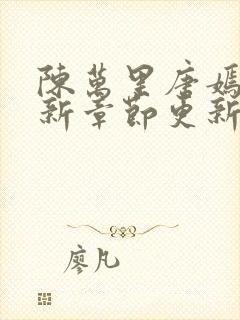 陳萬里唐嫣
新章節更新
廖凡